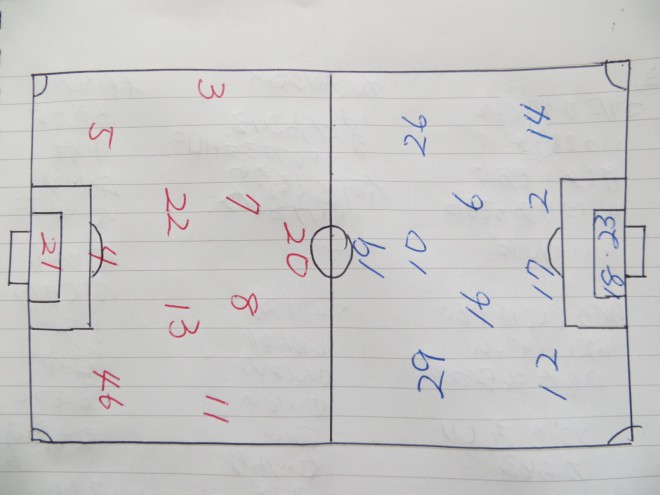 3
5
26
14
22
7
6
2
21
4
20
19
10
17
18·23
13
8
16
46
11
29
12